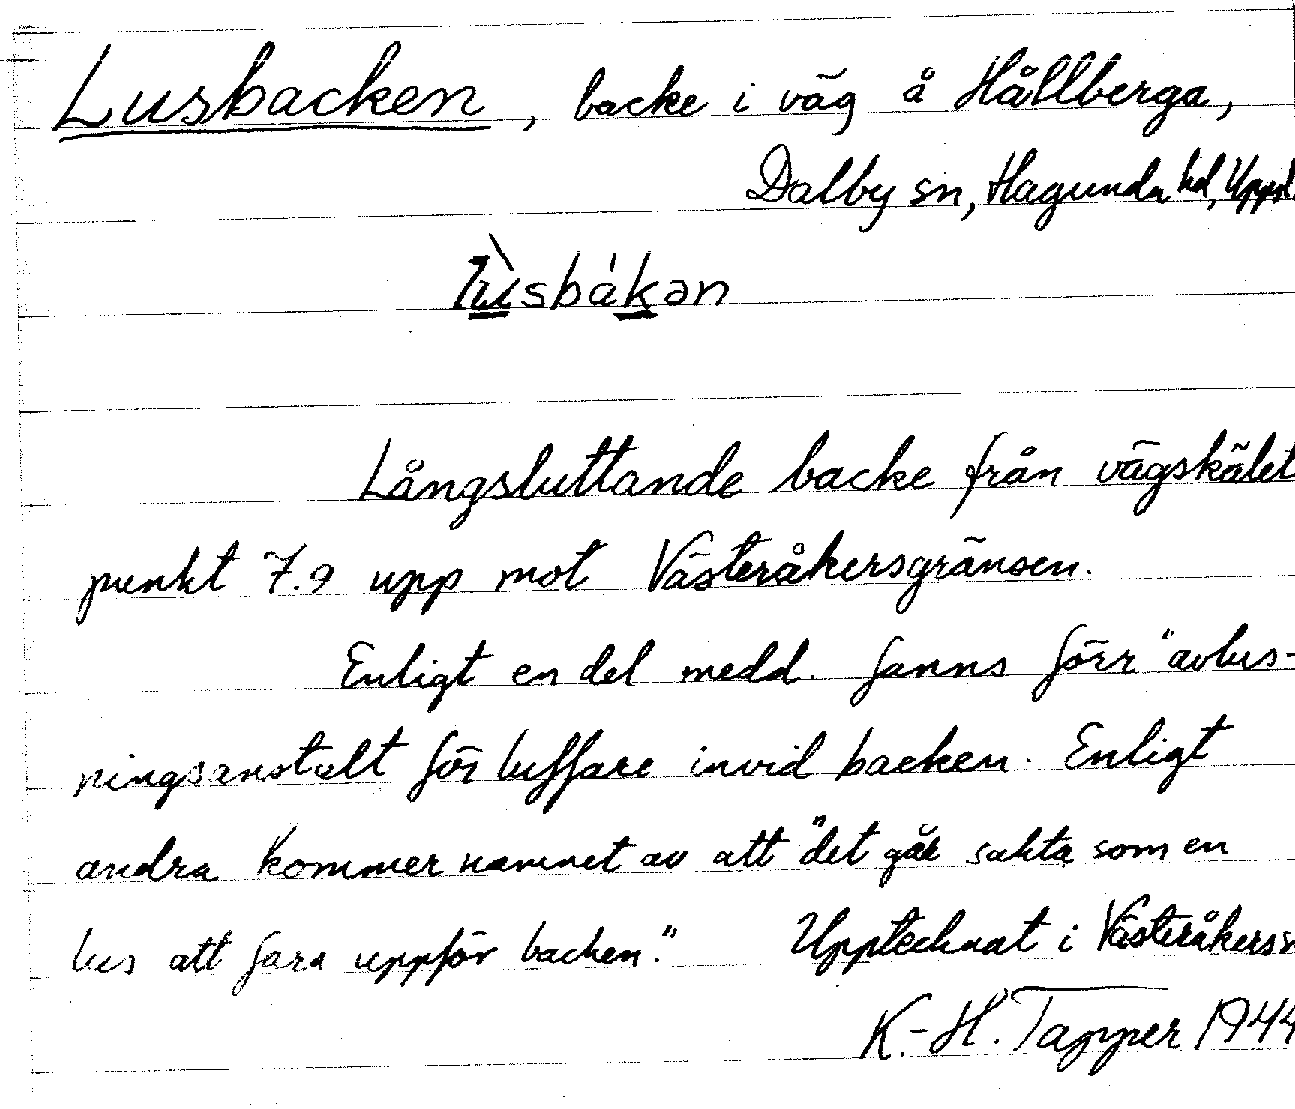 Lusbacken, backe i väg å Hållberga,
Dalby sn, Hagunda hd, Uppl.
Långsluttande backe från vägskälet
punkt 7.9 upp mot Västeråkersgränsen.
Enligt en del medd. fanns förr "avlus-
ningsanstalt för luffare invid backen. Enligt
andra kommer namnet av att "det går sakta som en
lus att fara uppför backen." Upptecknat i Västeråkers sn
K.-H. Tapper 1944